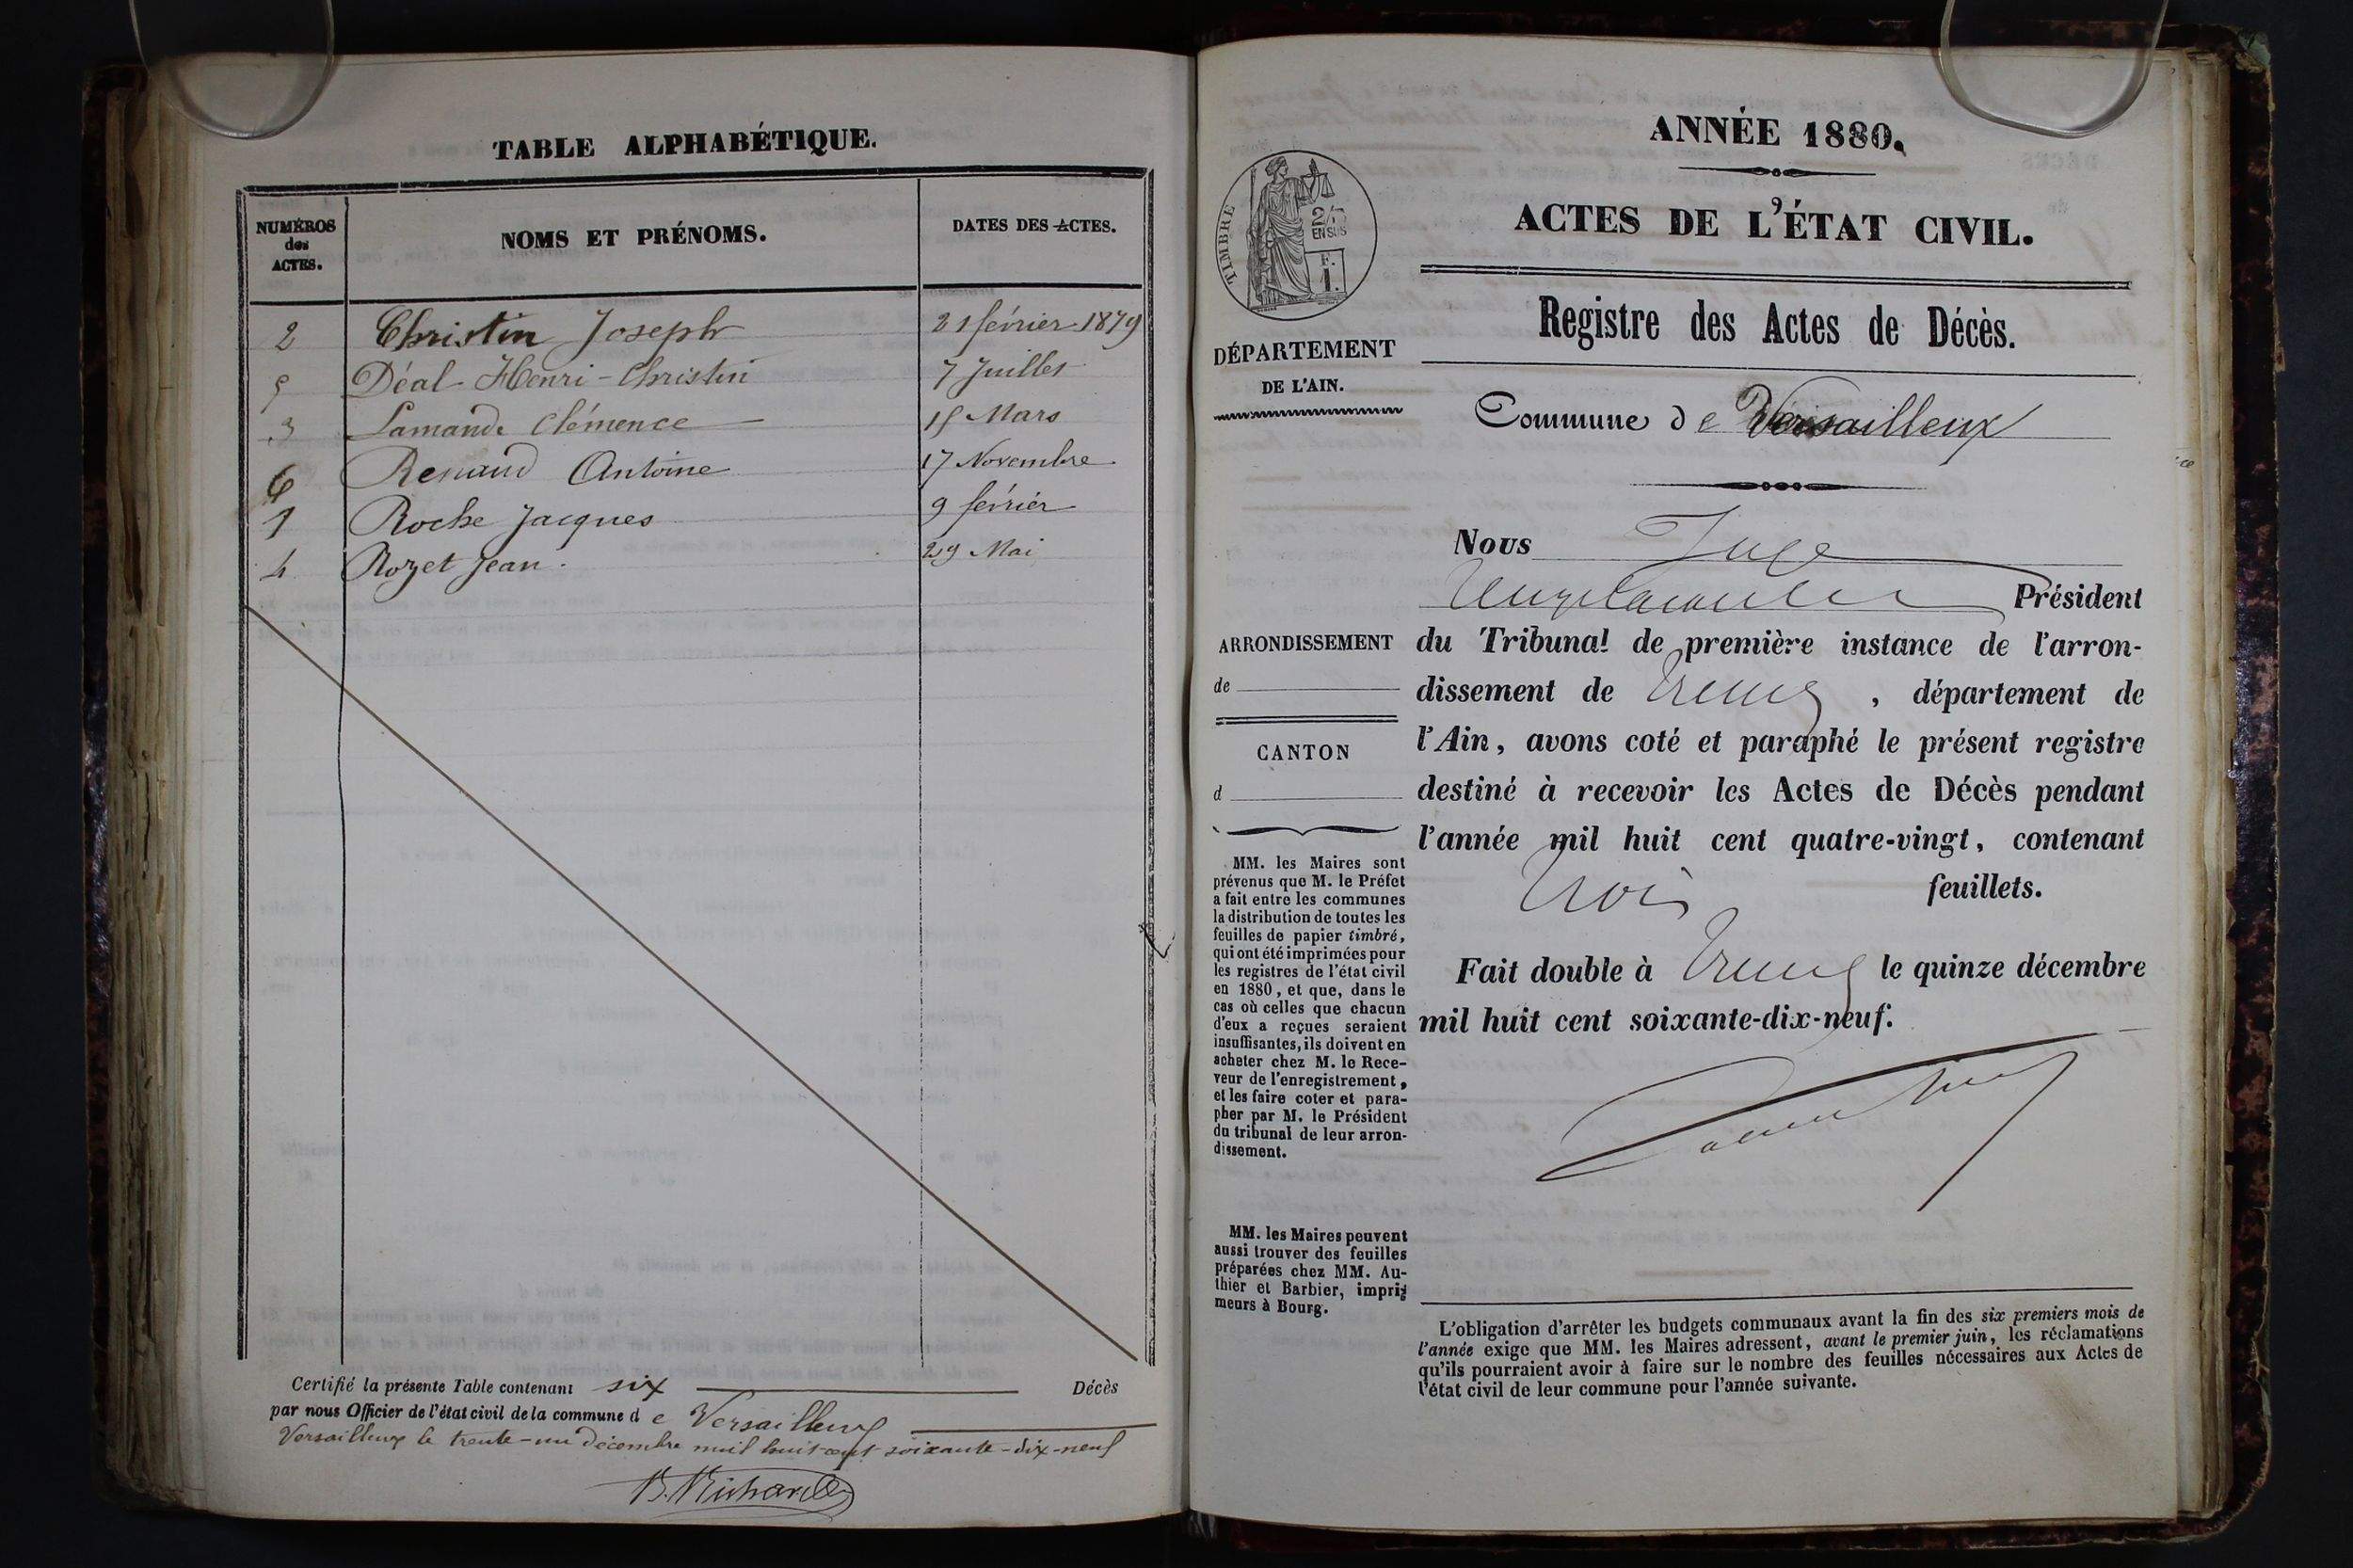 TABLE ALPHABÉTIQUE.
NUMÉROS
des
ACTES.
NOMS ET PRÉNOMS.
DATES DES ACTES.
2 Christin Joseph 21 février 1879
5 Déal Henri-Christin 7 Juillet
3 Lamande Clémence 15 Mars
6 Renaud Antoine 17 Novembre
1 Roche Jacques 9 février
4 Rozet Jean. 29 Mai
Certifié la présente Table contenant six Décès
par nous Officier de l'état civil de la commune d e Versailleux
Versailleux le trente-un décembre mil huit cent soixante-dix-neuf
B. Richard
ANNÉE 1880.
ACTES DE L'ÉTAT CIVIL.
Registre des Actes de Décès.
TIMBRE
2/10
EN SUS
F.
1.
DÉPARTEMENT
DE L'AIN.
Commune d e Versailleux
Nous Juge
Président
du Tribunal de première instance de l'arron-
dissement de Trévoux, département de
l'Ain, avons coté et paraphé le présent registre
destiné à recevoir les Actes de Décès pendant
l'année mil huit cent quatre-vingt, contenant
trois feuillets.
Fait double à Trévoux le quinze décembre
mil huit cent soixante-dix-neuf.
ARRONDISSEMENT
de
CANTON
d
MM. les Maires sont
prévenus que M. le Préfet
a fait entre les communes
la distribution de toutes les
feuilles de papier timbré,
qui ont été imprimées pour
les registres de l'état civil
en 1880, et que, dans le
cas où celles que chacun
d'eux a reçues seraient
insuffisantes, ils doivent en
acheter chez M. le Rece-
veur de l'enregistrement,
et les faire coter et para-
pher par M. le Président
du tribunal de leur arron-
dissement.
MM. les Maires peuvent
aussi trouver des feuilles
préparées chez MM. Au-
thier et Barbier, impri-
meurs à Bourg.
L'obligation d'arrêter les budgets communaux avant la fin des six premiers mois de
l'année exige que MM. les Maires adressent, avant le premier juin, les réclamations
qu'ils pourraient avoir à faire sur le nombre des feuilles nécessaires aux Actes de
l'état civil de leur commune pour l'année suivante.